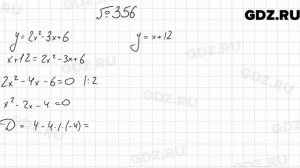 №356
GDZ.RU
y=2x²-3x+6 y=x+12
x+12=2x²-3x+6
2x²-4x-6=0 |:2
x²-2x-4=0
D= 4-4·1·(-4)=